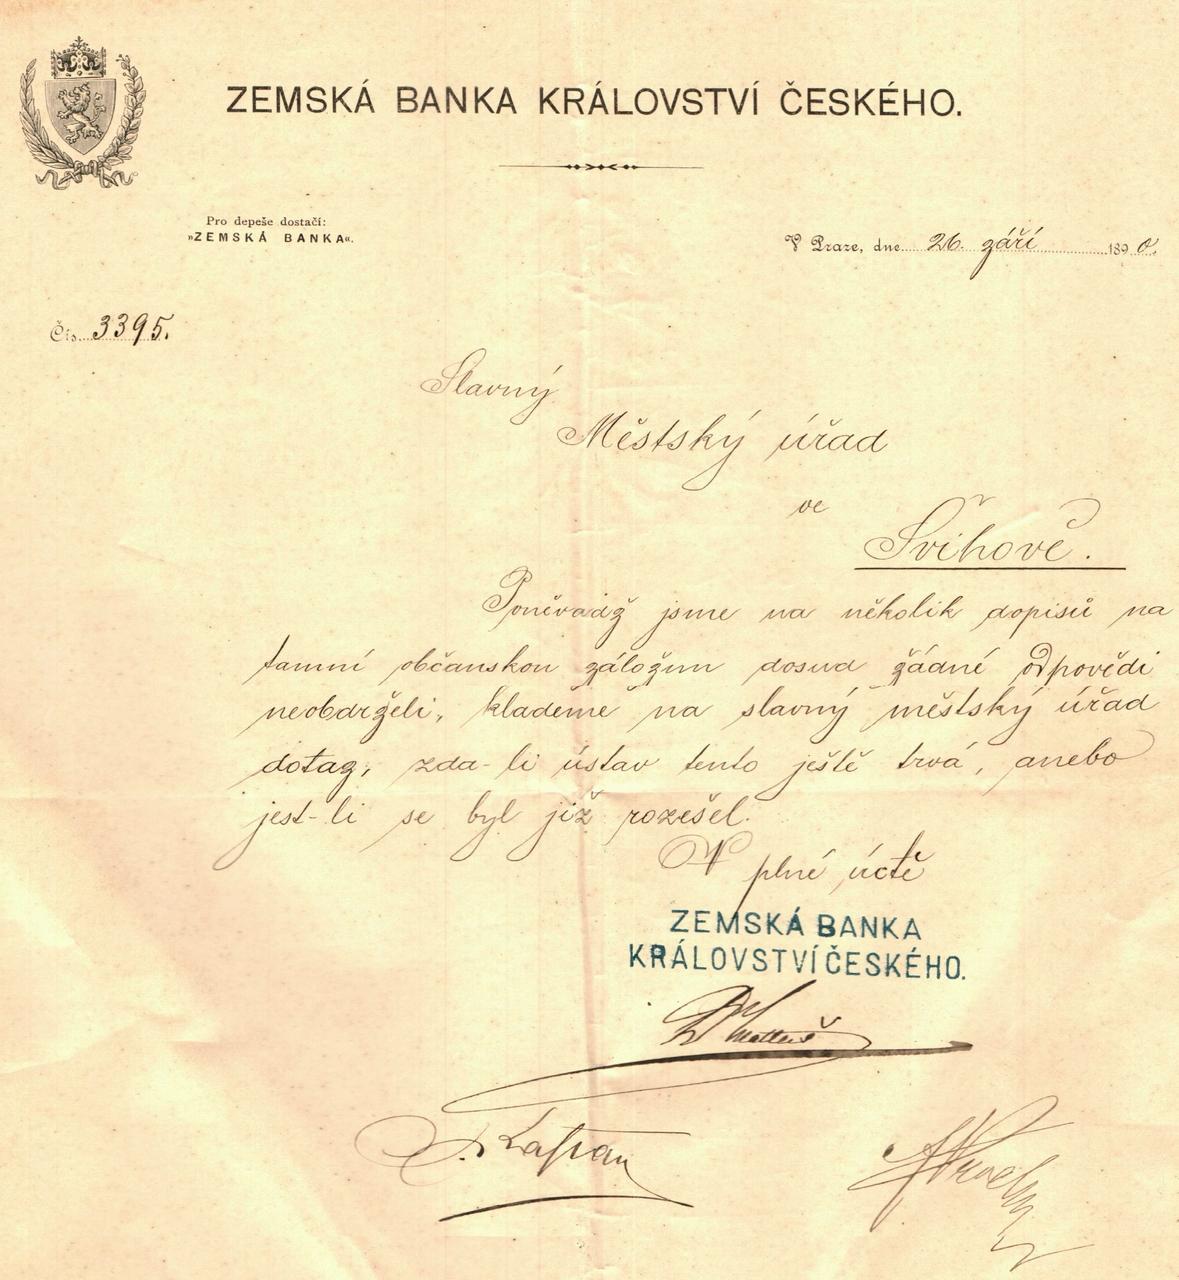 ZEMSKÁ BANKA KRÁLOVSTVÍ ČESKÉHO.
Pro depeše dostačí:
»ZEMSKÁ BANKA«.
V Praze, dne 26. září 1890.
Čís. 3395.
Slavný
Městský úřad
ve
Švihově.
Poněvadž jsme na několik dopisů na
tamní občanskou záložnu dosud žádné odpovědi
neobdrželi, klademe na slavný městský úřad
dotaz, zda-li ústav tento ještě trvá, anebo
jest-li se byl již rozešel.
V plné úctě
ZEMSKÁ BANKA
KRÁLOVSTVÍ ČESKÉHO.